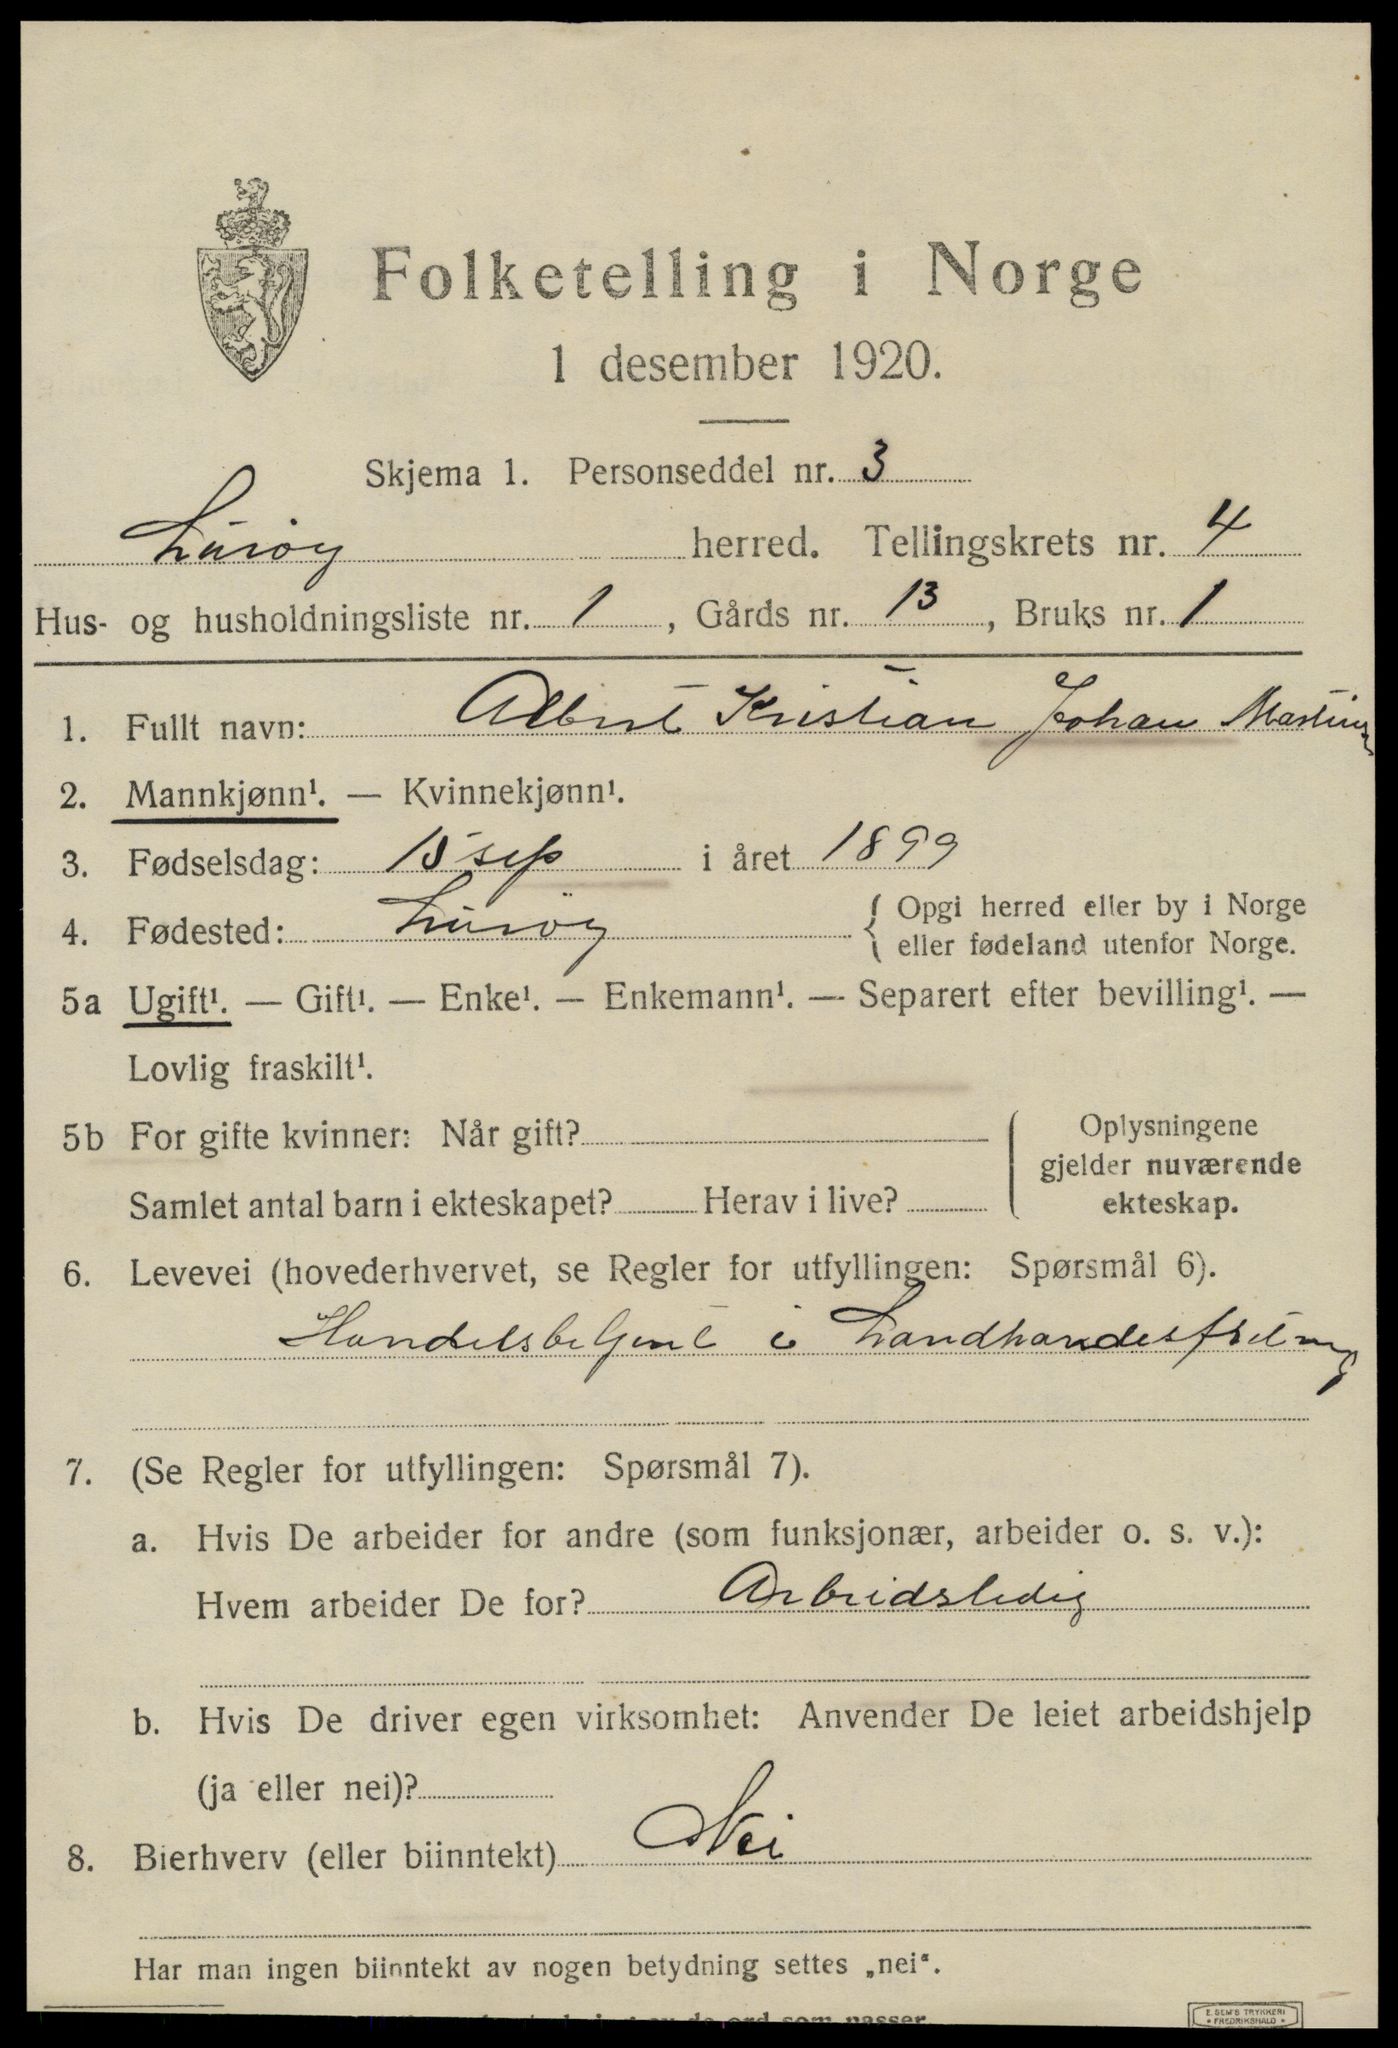 Folketelling i Norge
1 desember 1920.
Skjema 1. Personseddel nr. 3
Lurøy herred. Tellingskrets nr. 4
Hus- og husholdningsliste nr. 1, Gårds nr. 13, Bruks nr. 1
1. Fullt navn: Albert Kristian Johan
2. Mannkjønn¹. — Kvinnekjønn¹.
3. Fødselsdag: 15 sep i året 1899
4. Fødested: Lurøy { Opgi herred eller by i Norge
eller fødeland utenfor Norge.
5a Ugift¹. — Gift¹. — Enke¹. — Enkemann¹. — Separert efter bevilling¹. —
Lovlig fraskilt¹.
5b For gifte kvinner: Når gift?
Samlet antal barn i ekteskapet? Herav i live?
Oplysningene
gjelder nuværende
ekteskap.
6. Levevei (hovederhvervet, se Regler for utfyllingen: Spørsmål 6).
Handelsbetjent i
7. (Se Regler for utfyllingen: Spørsmål 7).
a. Hvis De arbeider for andre (som funksjonær, arbeider o. s. v.):
Hvem arbeider De for? Arbeidsledig
b. Hvis De driver egen virksomhet: Anvender De leiet arbeidshjelp
(ja eller nei)?
8. Bierhverv (eller biinntekt) Nei
Har man ingen biinntekt av nogen betydning settes „nei“.
E. SEM'S TRYKKERI
FREDRIKSHALD